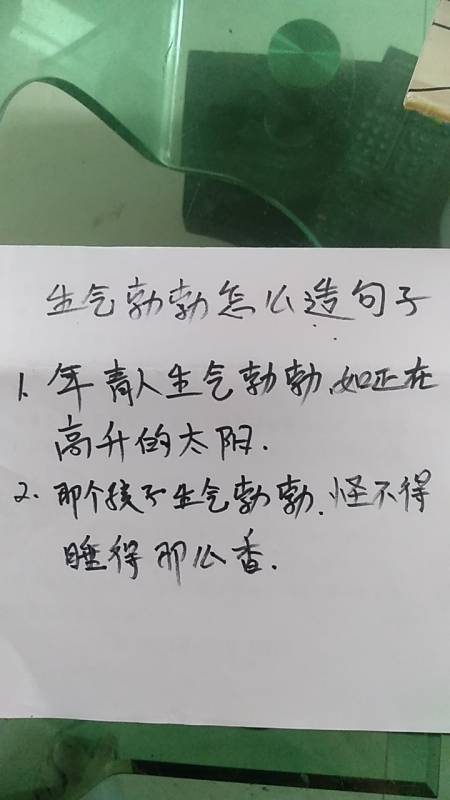 生气勃勃怎么造句子
1、年青人生气勃勃、如正在
高升的太阳.
2、那个孩子生气勃勃.怪不得
睡得那么香.